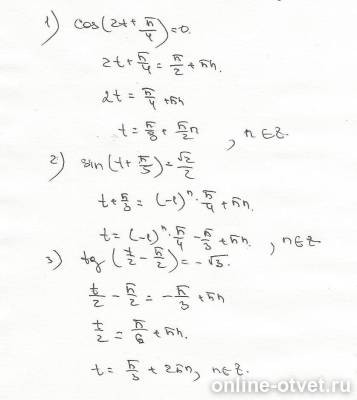 1) cos(2t + π/4) = 0.
2t + π/4 = π/2 + πn.
2t = π/4 + πn
t = π/8 + π/2 n , n ∈ Z.
2) sin(t + π/3) = √2/2
t + π/3 = (-1)^n · π/4 + πn.
t = (-1)^n · π/4 - π/3 + πn. , n ∈ Z
3) tg(t/2 - π/2) = -√3.
t/2 - π/2 = -π/3 + πn
t/2 = π/6 + πn.
t = π/3 + 2πn, n ∈ Z.
online-otvet.ru